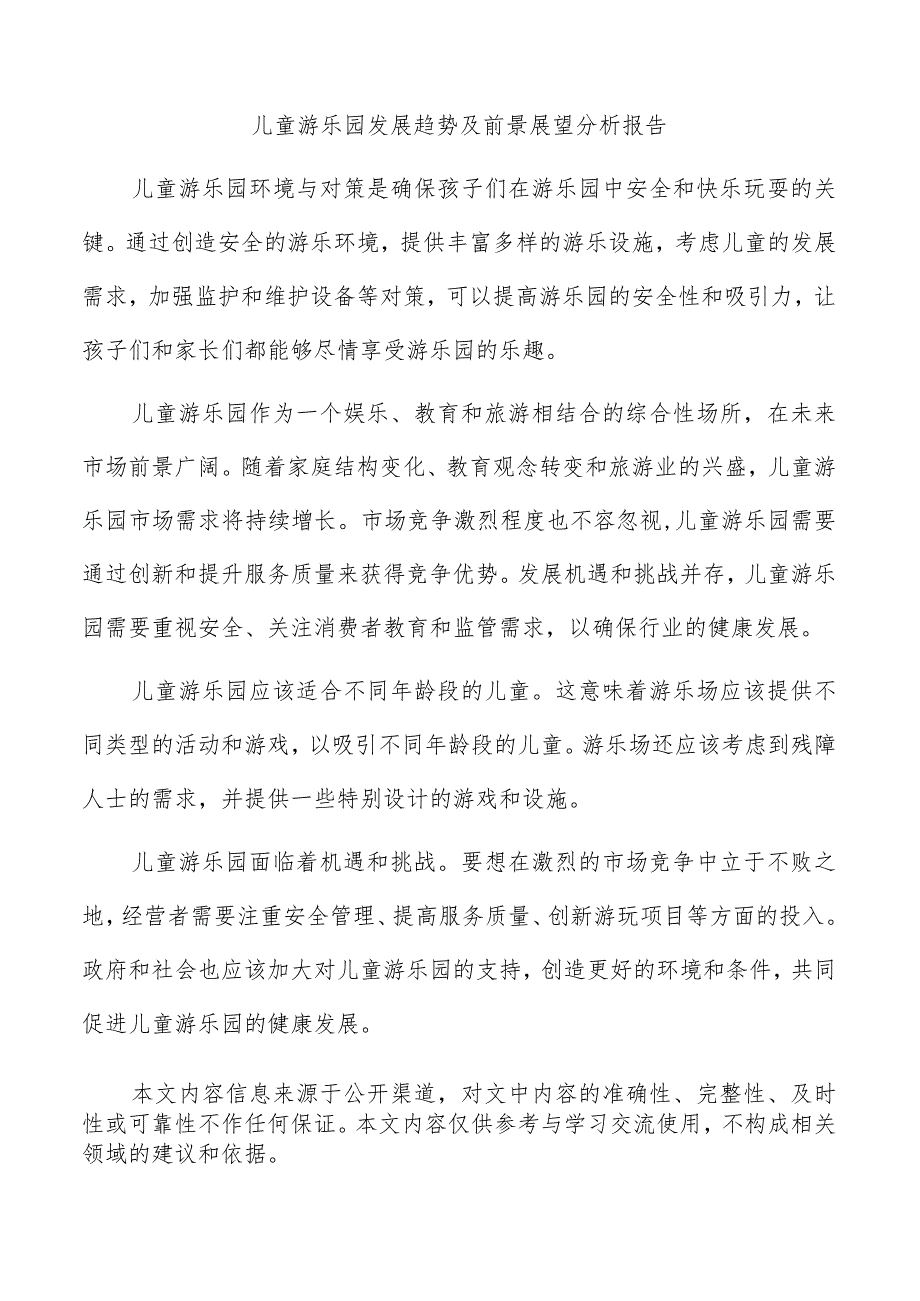 儿童游乐园发展趋势及前景展望分析报告
儿童游乐园环境与对策是确保孩子们在游乐园中安全和快乐玩耍的关
键。通过创造安全的游乐环境，提供丰富多样的游乐设施，考虑儿童的发展
需求，加强监护和维护设备等对策，可以提高游乐园的安全性和吸引力，让
孩子们和家长们都能够尽情享受游乐园的乐趣。
儿童游乐园作为一个娱乐、教育和旅游相结合的综合性场所，在未来
市场前景广阔。随着家庭结构变化、教育观念转变和旅游业的兴盛，儿童游
乐园市场需求将持续增长。市场竞争激烈程度也不容忽视,儿童游乐园需要
通过创新和提升服务质量来获得竞争优势。发展机遇和挑战并存，儿童游乐
园需要重视安全、关注消费者教育和监管需求，以确保行业的健康发展。
儿童游乐园应该适合不同年龄段的儿童。这意味着游乐场应该提供不
同类型的活动和游戏，以吸引不同年龄段的儿童。游乐场还应该考虑到残障
人士的需求，并提供一些特别设计的游戏和设施。
儿童游乐园面临着机遇和挑战。要想在激烈的市场竞争中立于不败之
地，经营者需要注重安全管理、提高服务质量、创新游玩项目等方面的投入。
政府和社会也应该加大对儿童游乐园的支持，创造更好的环境和条件，共同
促进儿童游乐园的健康发展。
本文内容信息来源于公开渠道，对文中内容的准确性、完整性、及时
性或可靠性不作任何保证。本文内容仅供参考与学习交流使用，不构成相关
领域的建议和依据。